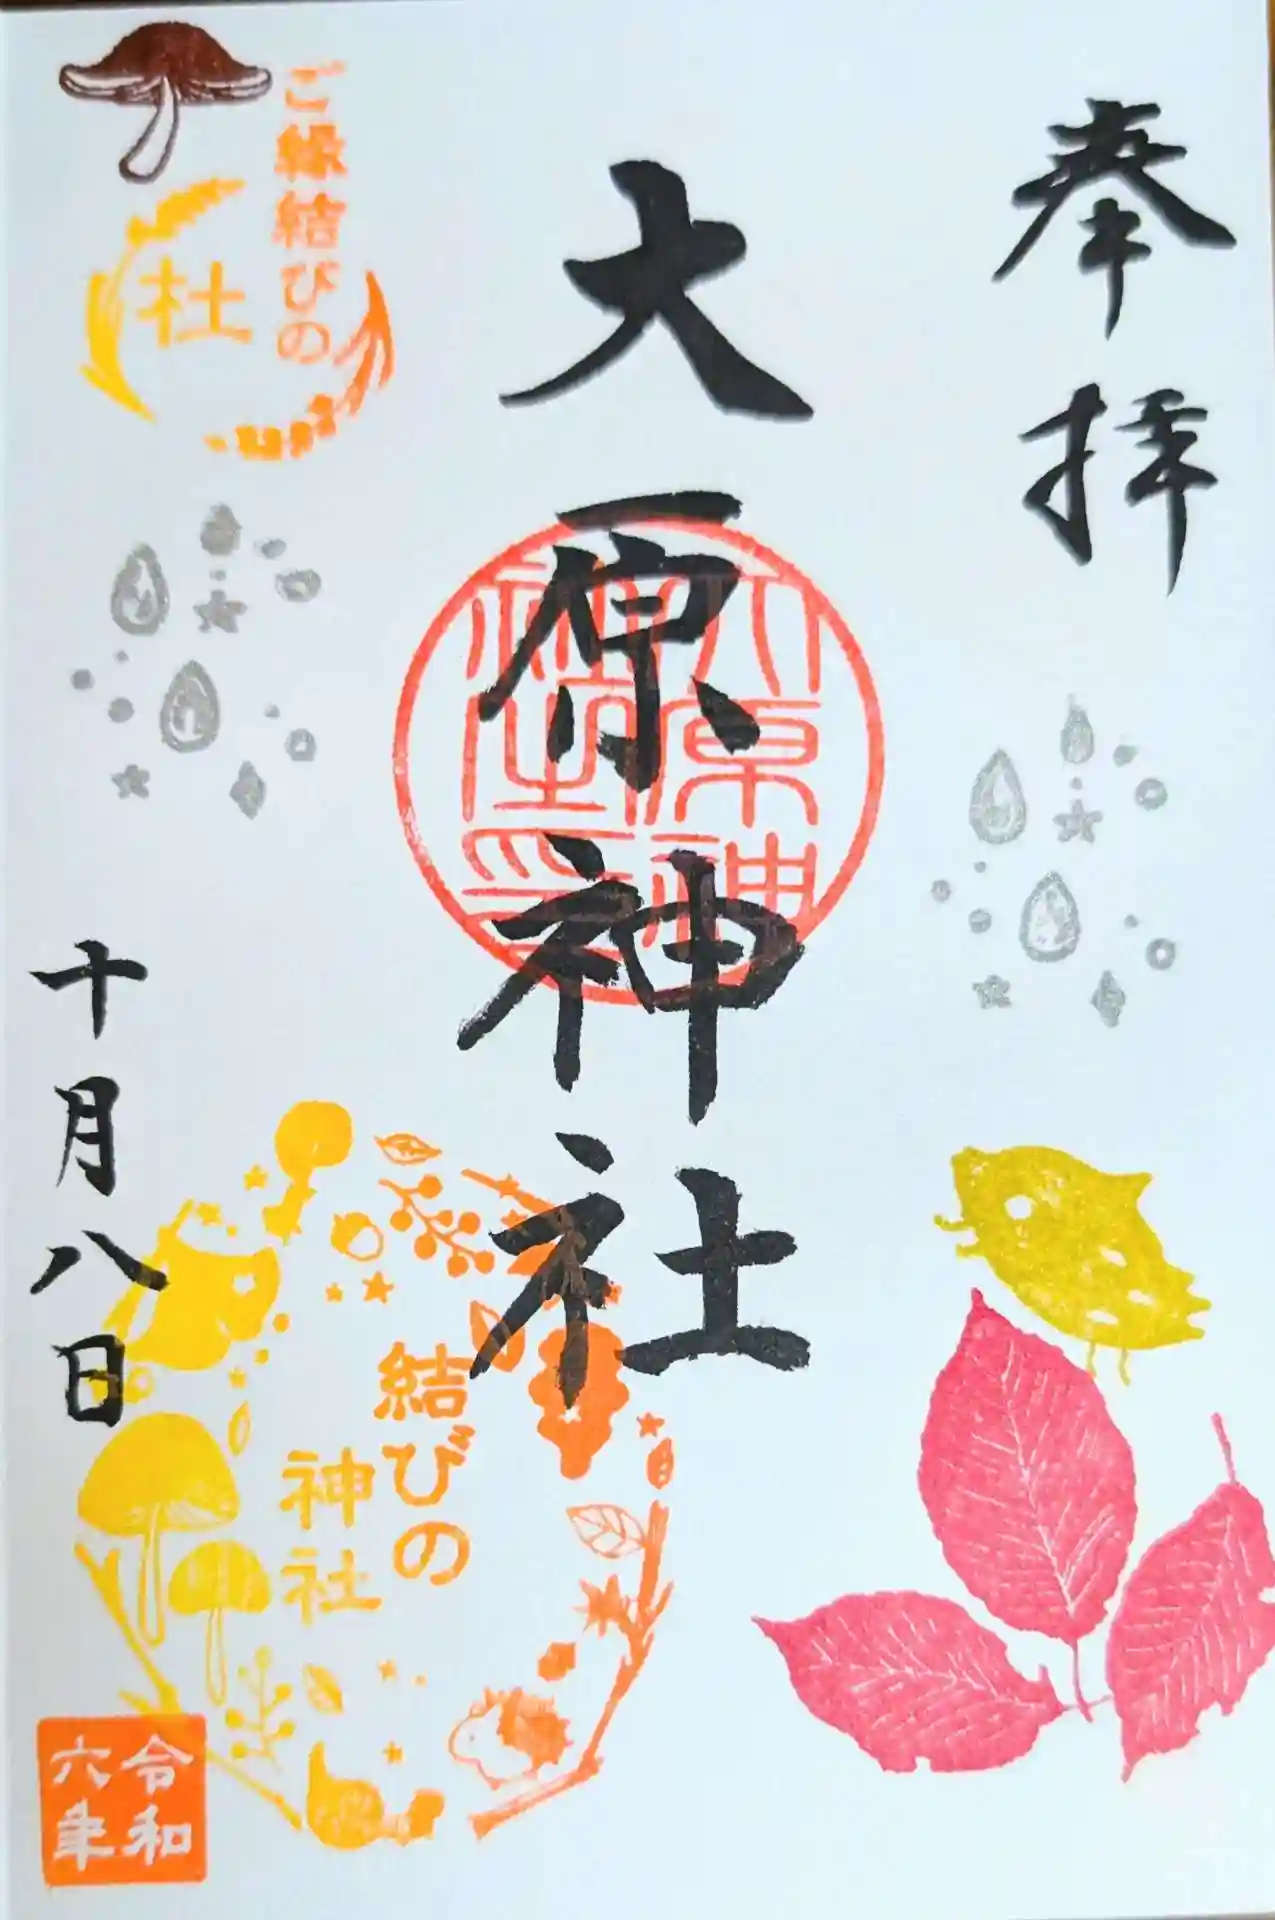 奉拝
大原神社
大原神社之印
ご縁結びの
杜
十月八日
結びの
神社
令和
六年